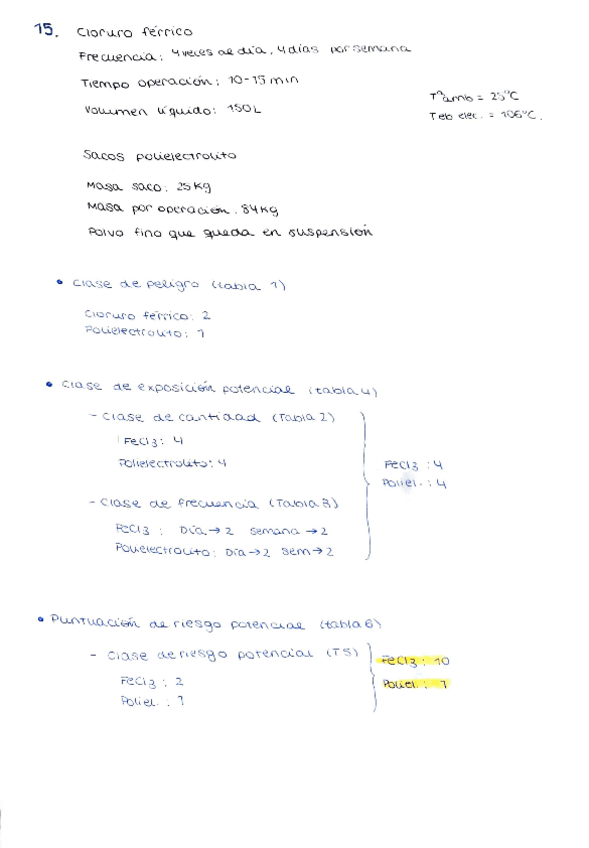 15. Cloruro férrico
Frecuencia: 4 veces al día, 4 días por semana
Tiempo operación: 10-15 min
Volumen líquido: 150L
Tª amb = 25ºC
Teb elec. = 106ºC.
Sacos polielectrolito
Masa saco: 25 kg
Masa por operación: 84 kg
Polvo fino que queda en suspensión
• Clase de peligro (tabla 1)
Cloruro férrico: 2
Polielectrolito: 1
• Clase de exposición potencial (tabla 4)
- Clase de cantidad (Tabla 2)
FeCl3: 4
Polielectrolito: 4
FeCl3 : 4
Poliel. : 4
- Clase de frecuencia (Tabla 3)
FeCl3 : Día → 2 semana → 2
Polielectrolito: Día → 2 sem → 2
• Puntuación de riesgo potencial (tabla 6)
- Clase de riesgo potencial (T5)
FeCl3 : 2
Poliel. : 1
FeCl3 : 10
Poliel. : 1